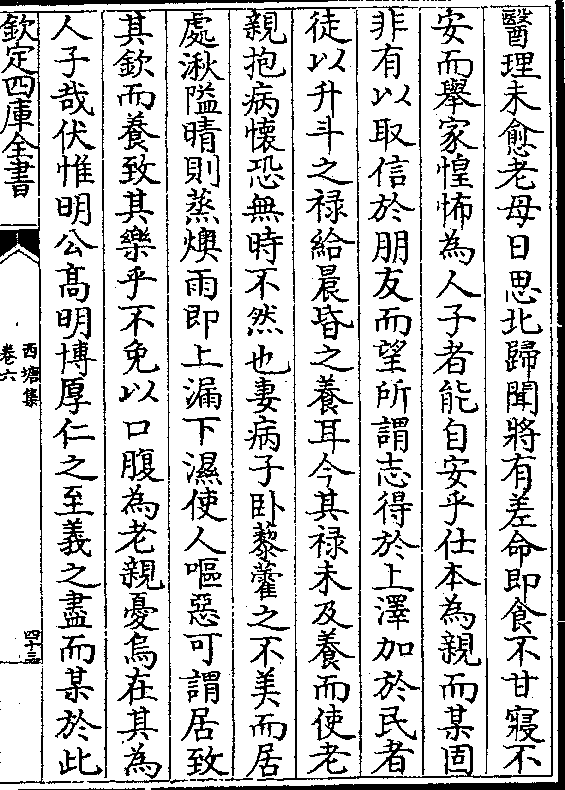 醫理未愈老母日思北歸聞將有差命即食不甘寢不
安而舉家惶怖為人子者能自安乎仕本為親而某固
非有以取信於朋友而望所謂志得於上澤加於民者
徒以升斗之禄給晨昏之養耳今其禄未及養而使老
親抱病懷恐無時不然也妻病子卧藜藿之不美而居
處湫隘晴則蒸燠雨即上漏下濕使人嘔惡可謂居致
其欽而養致其樂乎不免以口腹為老親憂烏在其為
人子哉伏惟明公髙明博厚仁之至義之盡而某於此
欽定四庫全書
西塘集
卷六
四十三